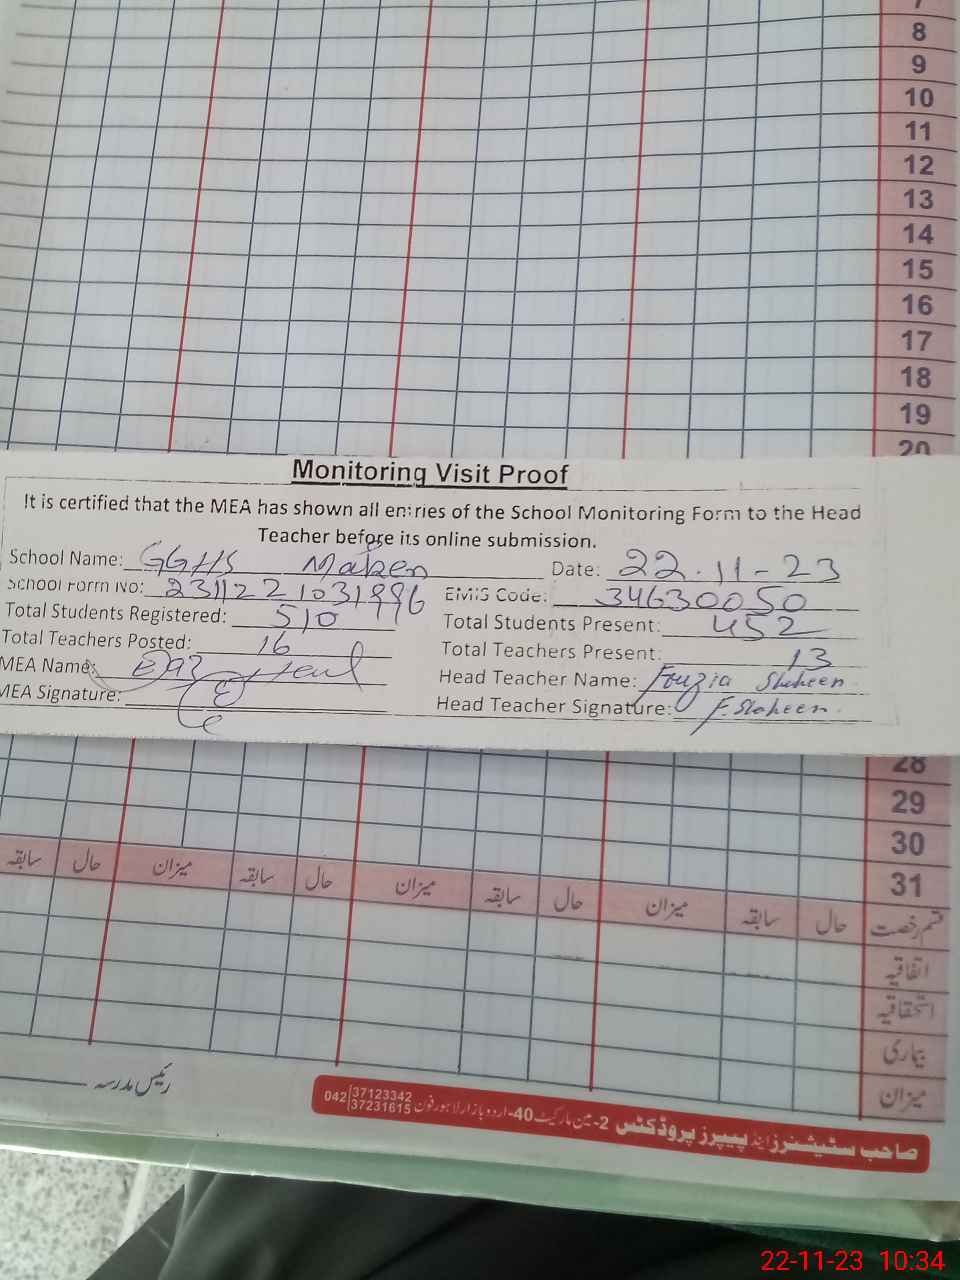 7
8
9
10
11
12
13
14
15
16
17
18
19
20
Monitoring Visit Proof
It is certified that the MEA has shown all entries of the School Monitoring Form to the Head
Teacher before its online submission.
School Name: GGHS Maken Date: 22.11-23
School Form No: EMIS Code: 34630050
Total Students Registered: 510 Total Students Present: 452
Total Teachers Posted: 16 Total Teachers Present: 13
MEA Name: Head Teacher Name: Fouzia Shaheen
MEA Signature: Head Teacher Signature: F. Shaheen
28
29
30
31
قسم رخصت حال سابقہ میزان حال سابقہ میزان حال سابقہ میزان حال سابقہ
اتفاقیہ
استحقاقیہ
بیماری
میزان
رئیس مدرسہ
صاحب سٹیشنرز اینڈ پیپرز پروڈکٹس 2-مین مارکیٹ 40-اردو بازار لاہور فون 042 37123342 37231615
22-11-23 10:34